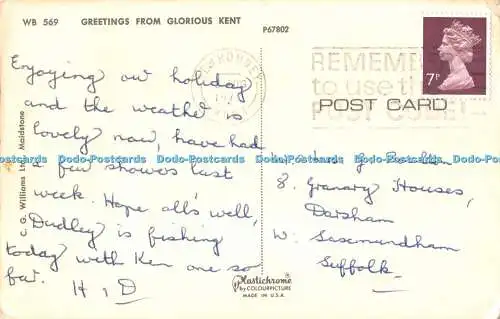 WB 569 GREETINGS FROM GLORIOUS KENT
P67802
REMEMBER
to use the
POST CODE
7P
POST CARD
Enjoying our holiday
and the weather is
lovely now, have had
a few showers last
week. Hope all's well,
Dudley is fishing
today with Ken one so
far.
H, D
8, Granary Houses,
Darsham
W. Saxmundham
Suffolk
G. Williams Ltd. Maidstone
Dodo-Postcards Dodo-Postcards Dodo-Postcards Dodo-Postcards Dodo-Postcards
Plastichrome
by COLOURPICTURE
MADE IN U.S.A.